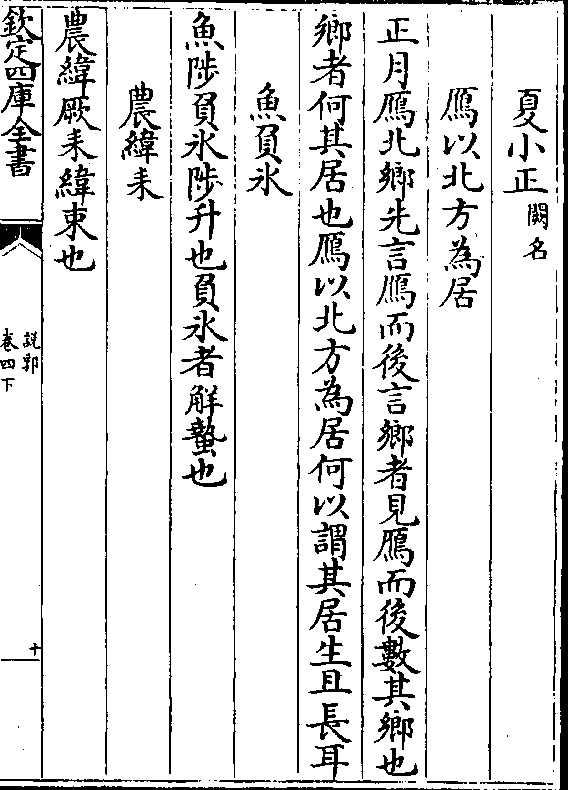 夏小正闕名
鴈以北方為居
正月鴈北鄉先言鴈而後言鄉者見鴈而後數其鄉也
鄉者何其居也鴈以北方為居何以謂其居生且長耳
魚負氷
魚陟負氷陟升也負氷者解蟄也
農緯耒
農緯厥耒緯束也
欽定四庫全書
說郛
卷四下
十